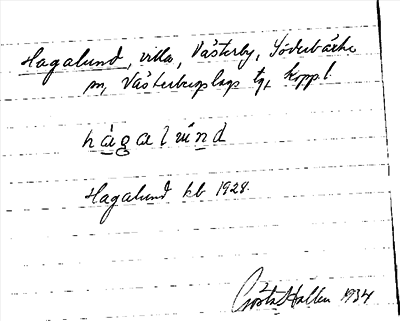 Hagalund, villa, Västerby, Söderbärke
sn, Västerbergslags tg, Koppl.
hágalund
Hagalund kb 1928.
Gösta Hallen 1934